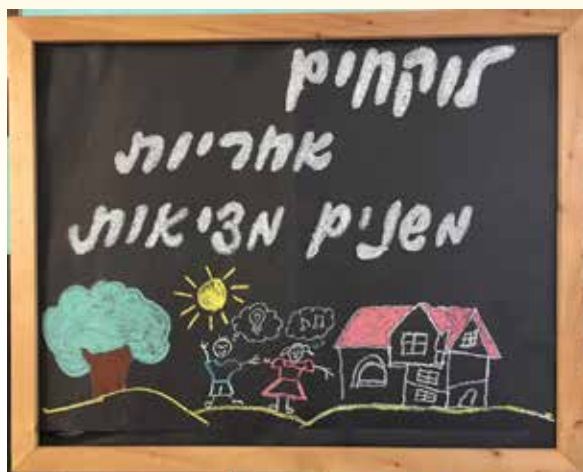 לוקחים
אחריות
משנים מציאות